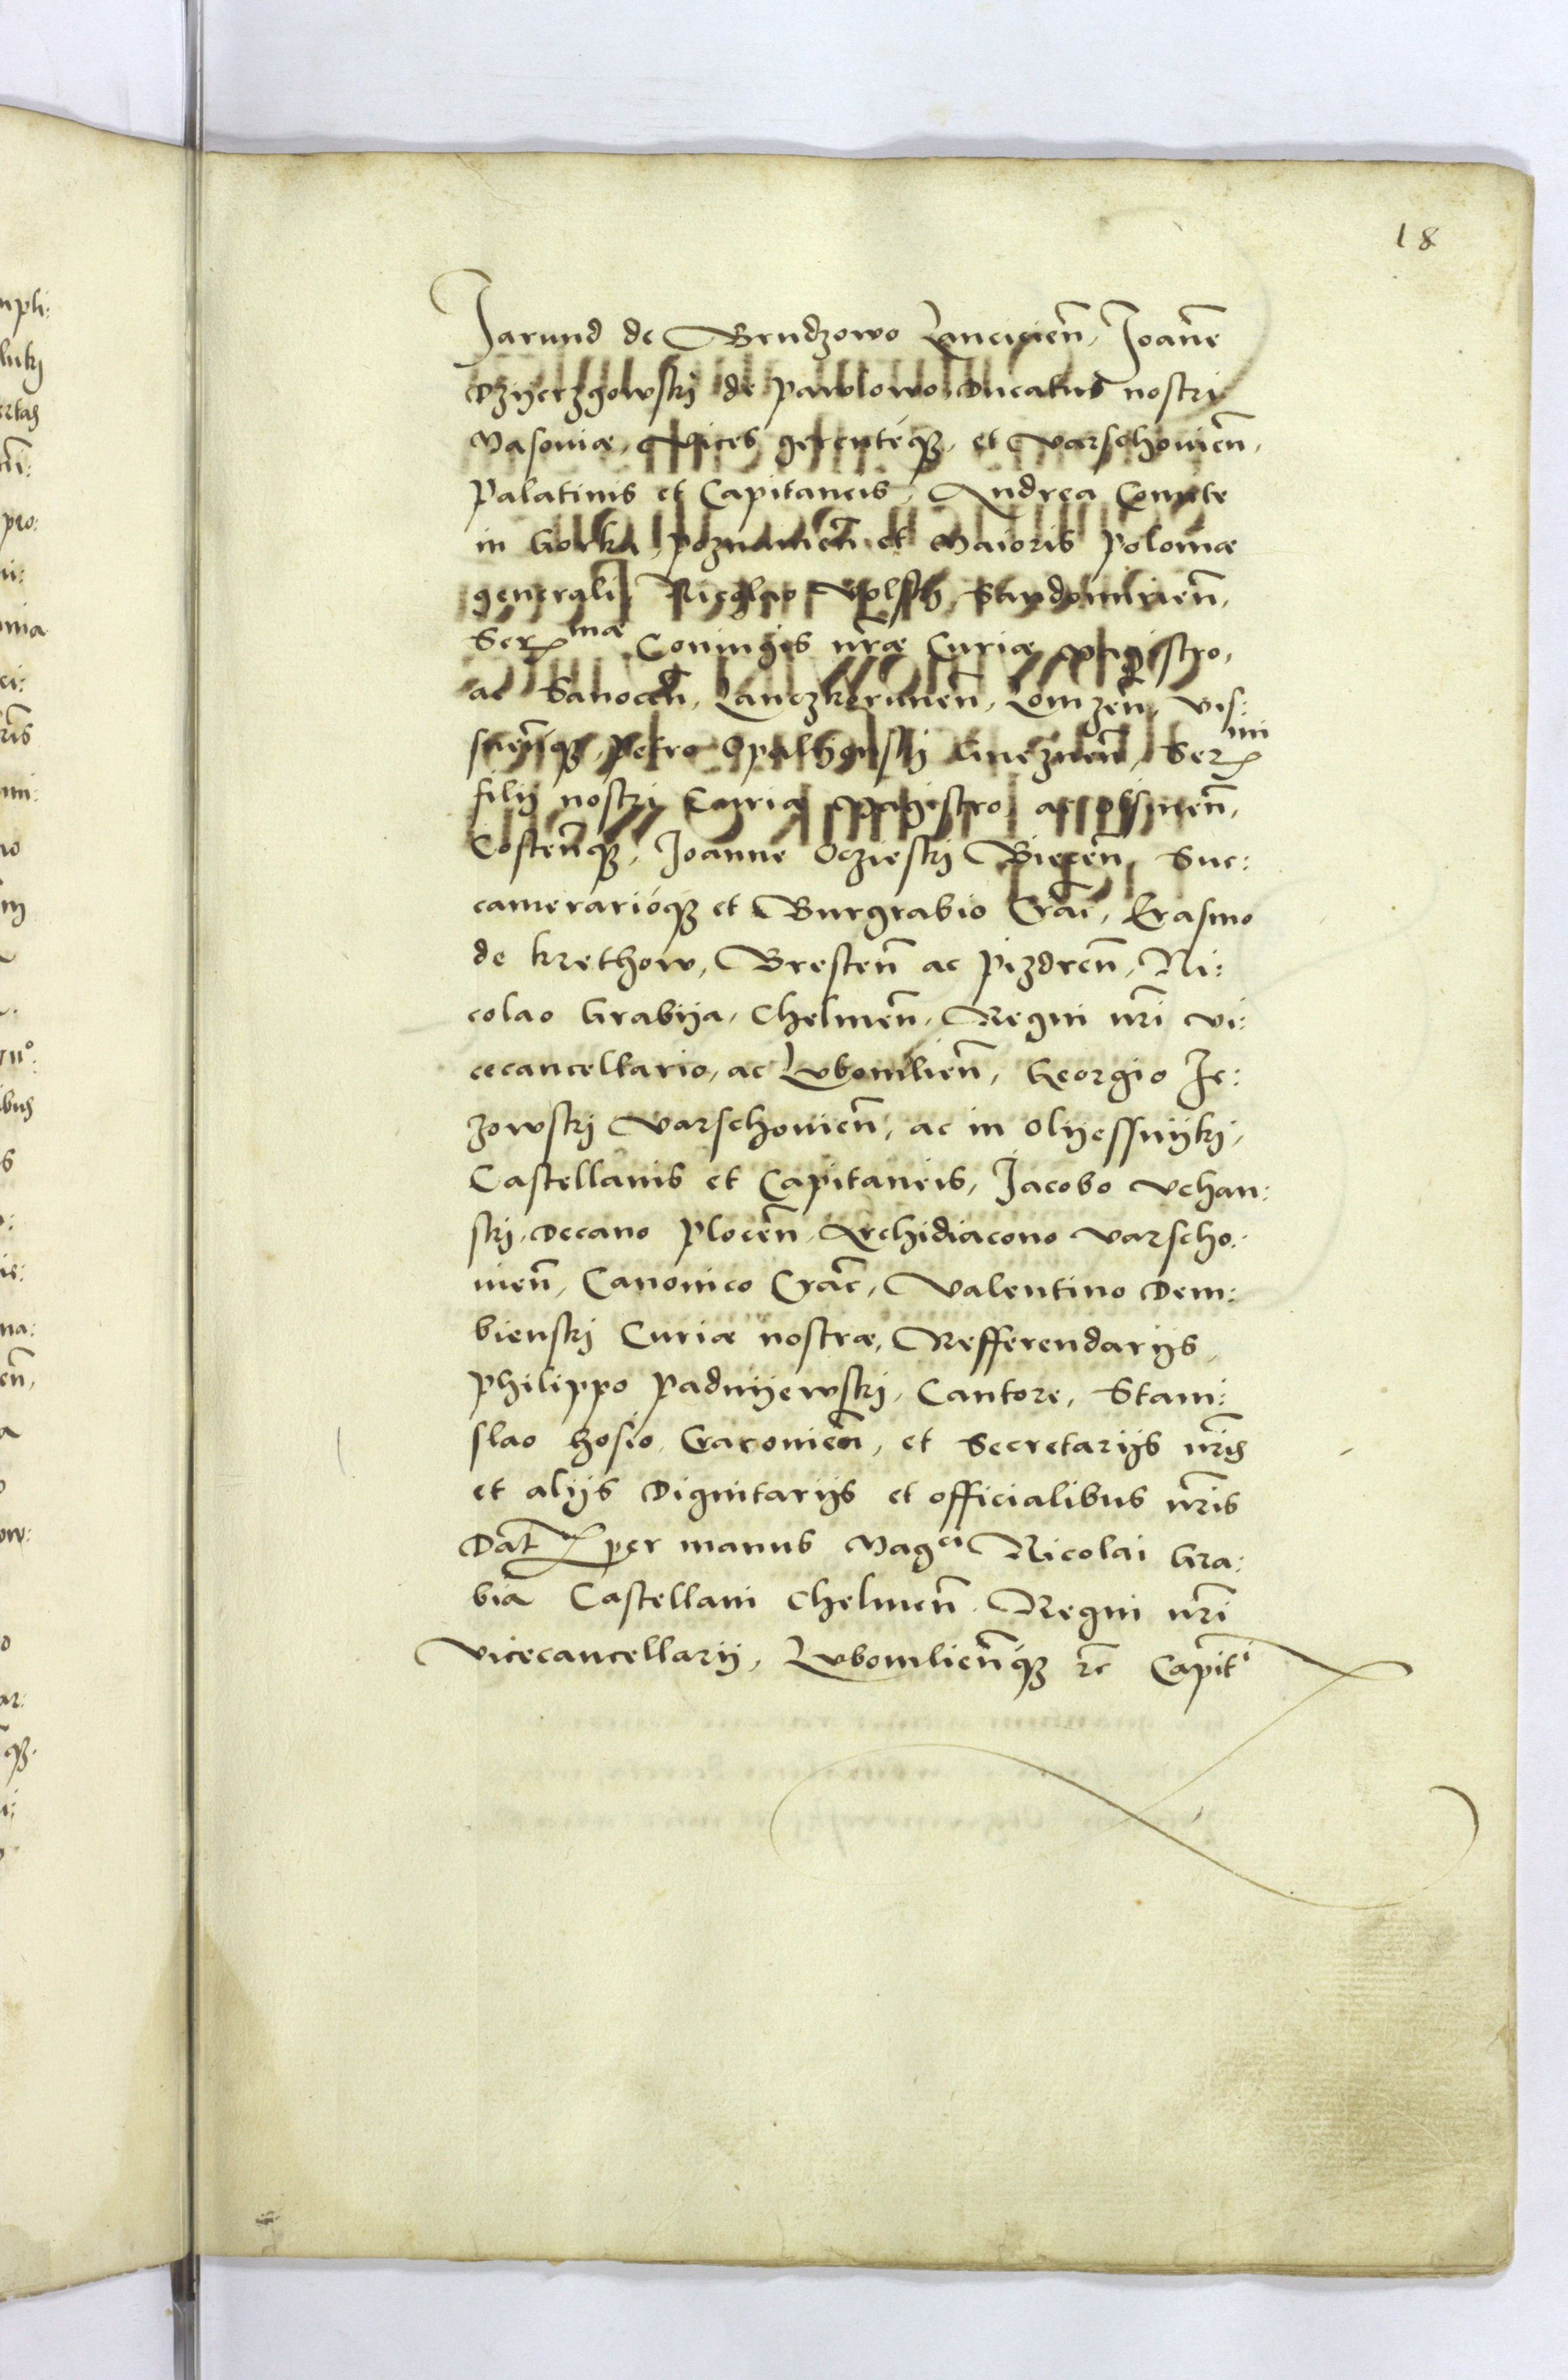 18
Jarund de Brudzowo Lancicien̄, Joan̄e
Dzyerzgowskj de Pawlowo Ducatus nostri
Masoviæ, Vices gerenteq3, et Varschovien̄,
Palatinis et Capitaneis, Andrea Comite
in Gorka, Poznanien̄ et Maioris Poloniæ
generali, Nicolao Volsky, Sandomirien̄,
Ser:mæ Coniugis nr̄æ Curiæ Magistro,
ac Sanocen̄, Lanczkorunen̄, Lomzen̄, Vis:
snen̄q3, Petro Opalienskj Gneznen̄, Ser:mi
filij nostri Curiæ Magistro, ac Olsinen̄,
Costen̄q3, Joanne Oczieskj Biecen̄, Suc:
camerarioq3 et Burgrabio Crac̄, Erasmo
de Krethow, Bresten̄ ac Pizdren̄, Ni:
colao Grabÿa, Chelmen̄, Regni nr̄i Vi:
cecancellario, ac Lubomlien̄, Georgio Je:
zowskj Varschovien̄, ac in Olÿessnÿkj,
Castellanis et Capitaneis, Jacobo Vchan:
skj, Decano Plocen̄, Archidiacono Varscho:
vien̄, Canonico Crac̄, Valentino Dem:
bienskj Curiæ nostræ, Refferendarijs,
Philippo Padnÿewskj, Cantore, Stani:
slao Hosio, Cracovien̄, et Secretarijs nr̄is
et alijs Dignitarijs et officialibus nr̄is
Dat̄ per manus Mag:ci Nicolai Gra:
bia Castellani Chelmen̄ Regni nr̄i
Vicecancellarij, Lubomlien̄q3 r̄c Capit:i